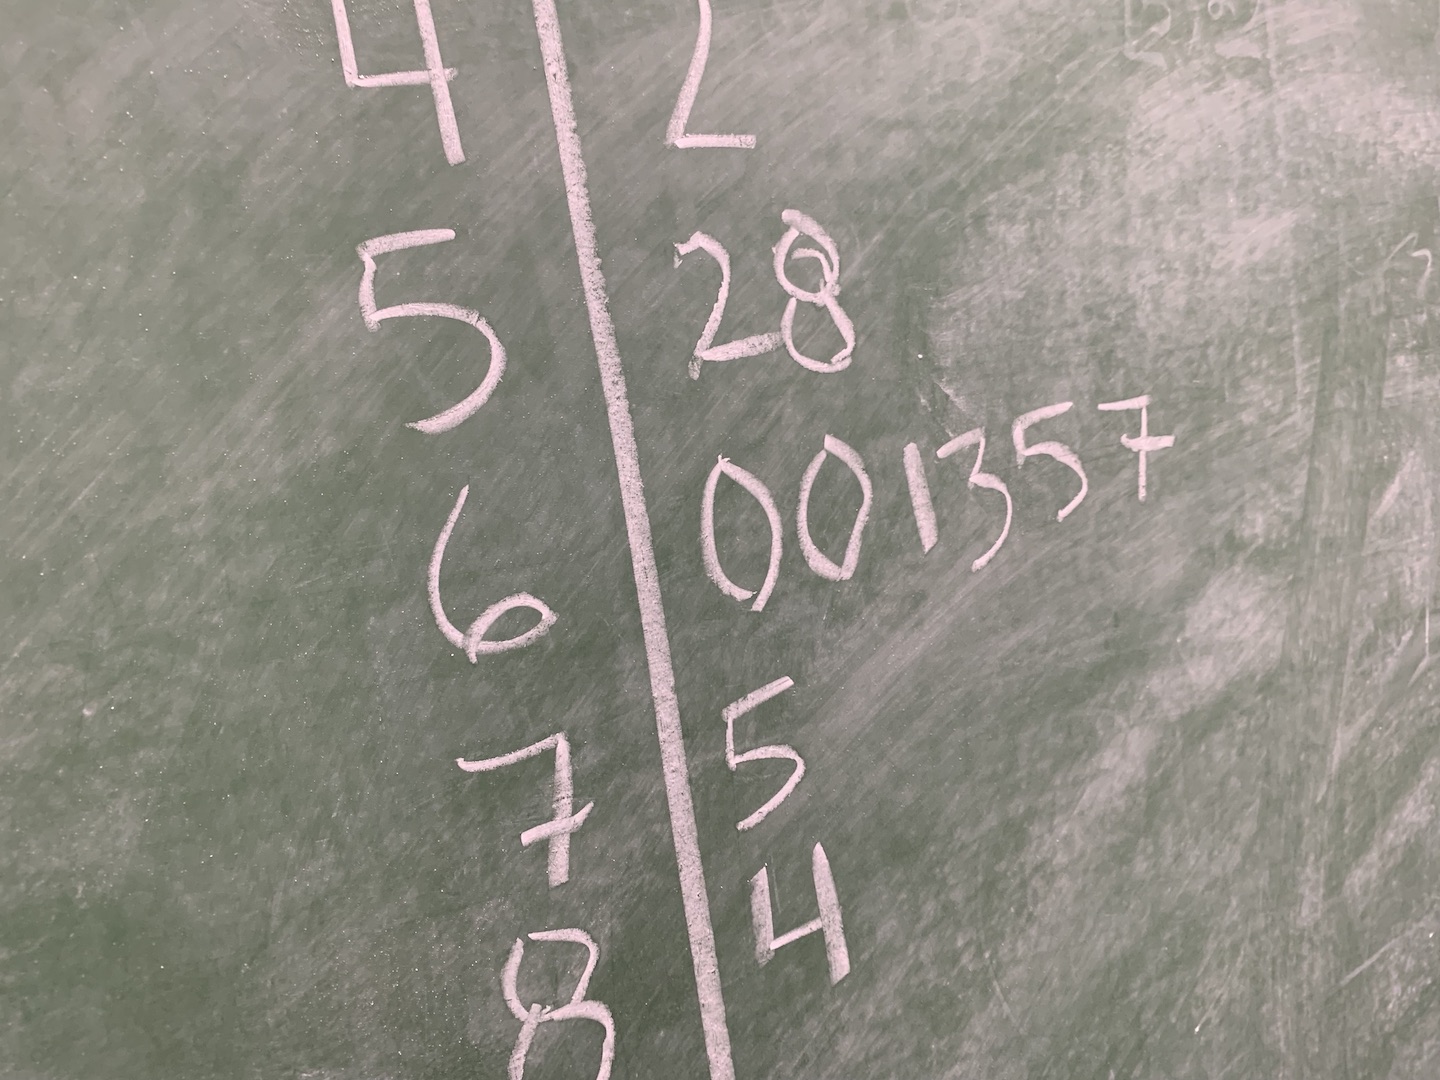 4 | 2
5 | 28
6 | 001357
7 | 5
8 | 4